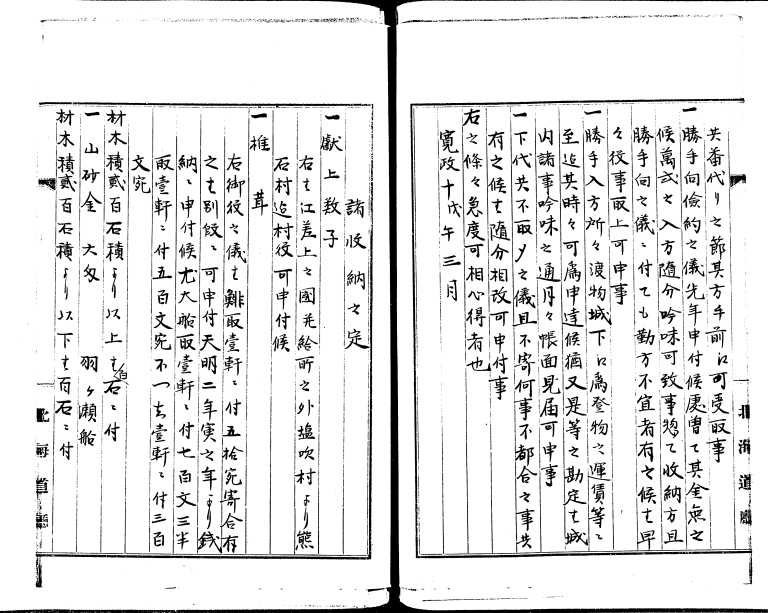 共番代り之節其方手前ニ而可受取事
一勝手向倹約之儀先年申付候處曽て其全無之
候萬或之入方随分吟味可致事惣て収納方且
勝手向之儀ニ付ても勤方不宜者有之候も早
々役事取上可申事
一勝手入方所々浪物城下ニ為登物之運賃等ニ
至迄其時々可為申達候猶又是等之勘定も城
内諸事吟味之通月々帳面見届可申事
一下代共不取〆之儀且不寄何事不都合之事共
有之候も随分相改可申付事
右之條々急度可相心得者也
寛政十戊午三月
北海道廳
諸収納之定
一献上数子
右も江差上之國并給所之外塩吹村より熊
石村迄村役可申付候
一椎茸
右御役之儀も鯡取壹軒ニ付五拾宛寄合有
之も別段ニ可申付天明二年寅之年より銭
納ニ申付候尤大船取壹軒ニ付七百文三半
取壹軒ニ付五百文宛不一も壹軒ニ付三百
文宛
材木積貳百石積より以上も百石ニ付
一山砂金 六匁 羽ヶ瀬船
材木積貳百石積より以下も百石ニ付
北海道廳